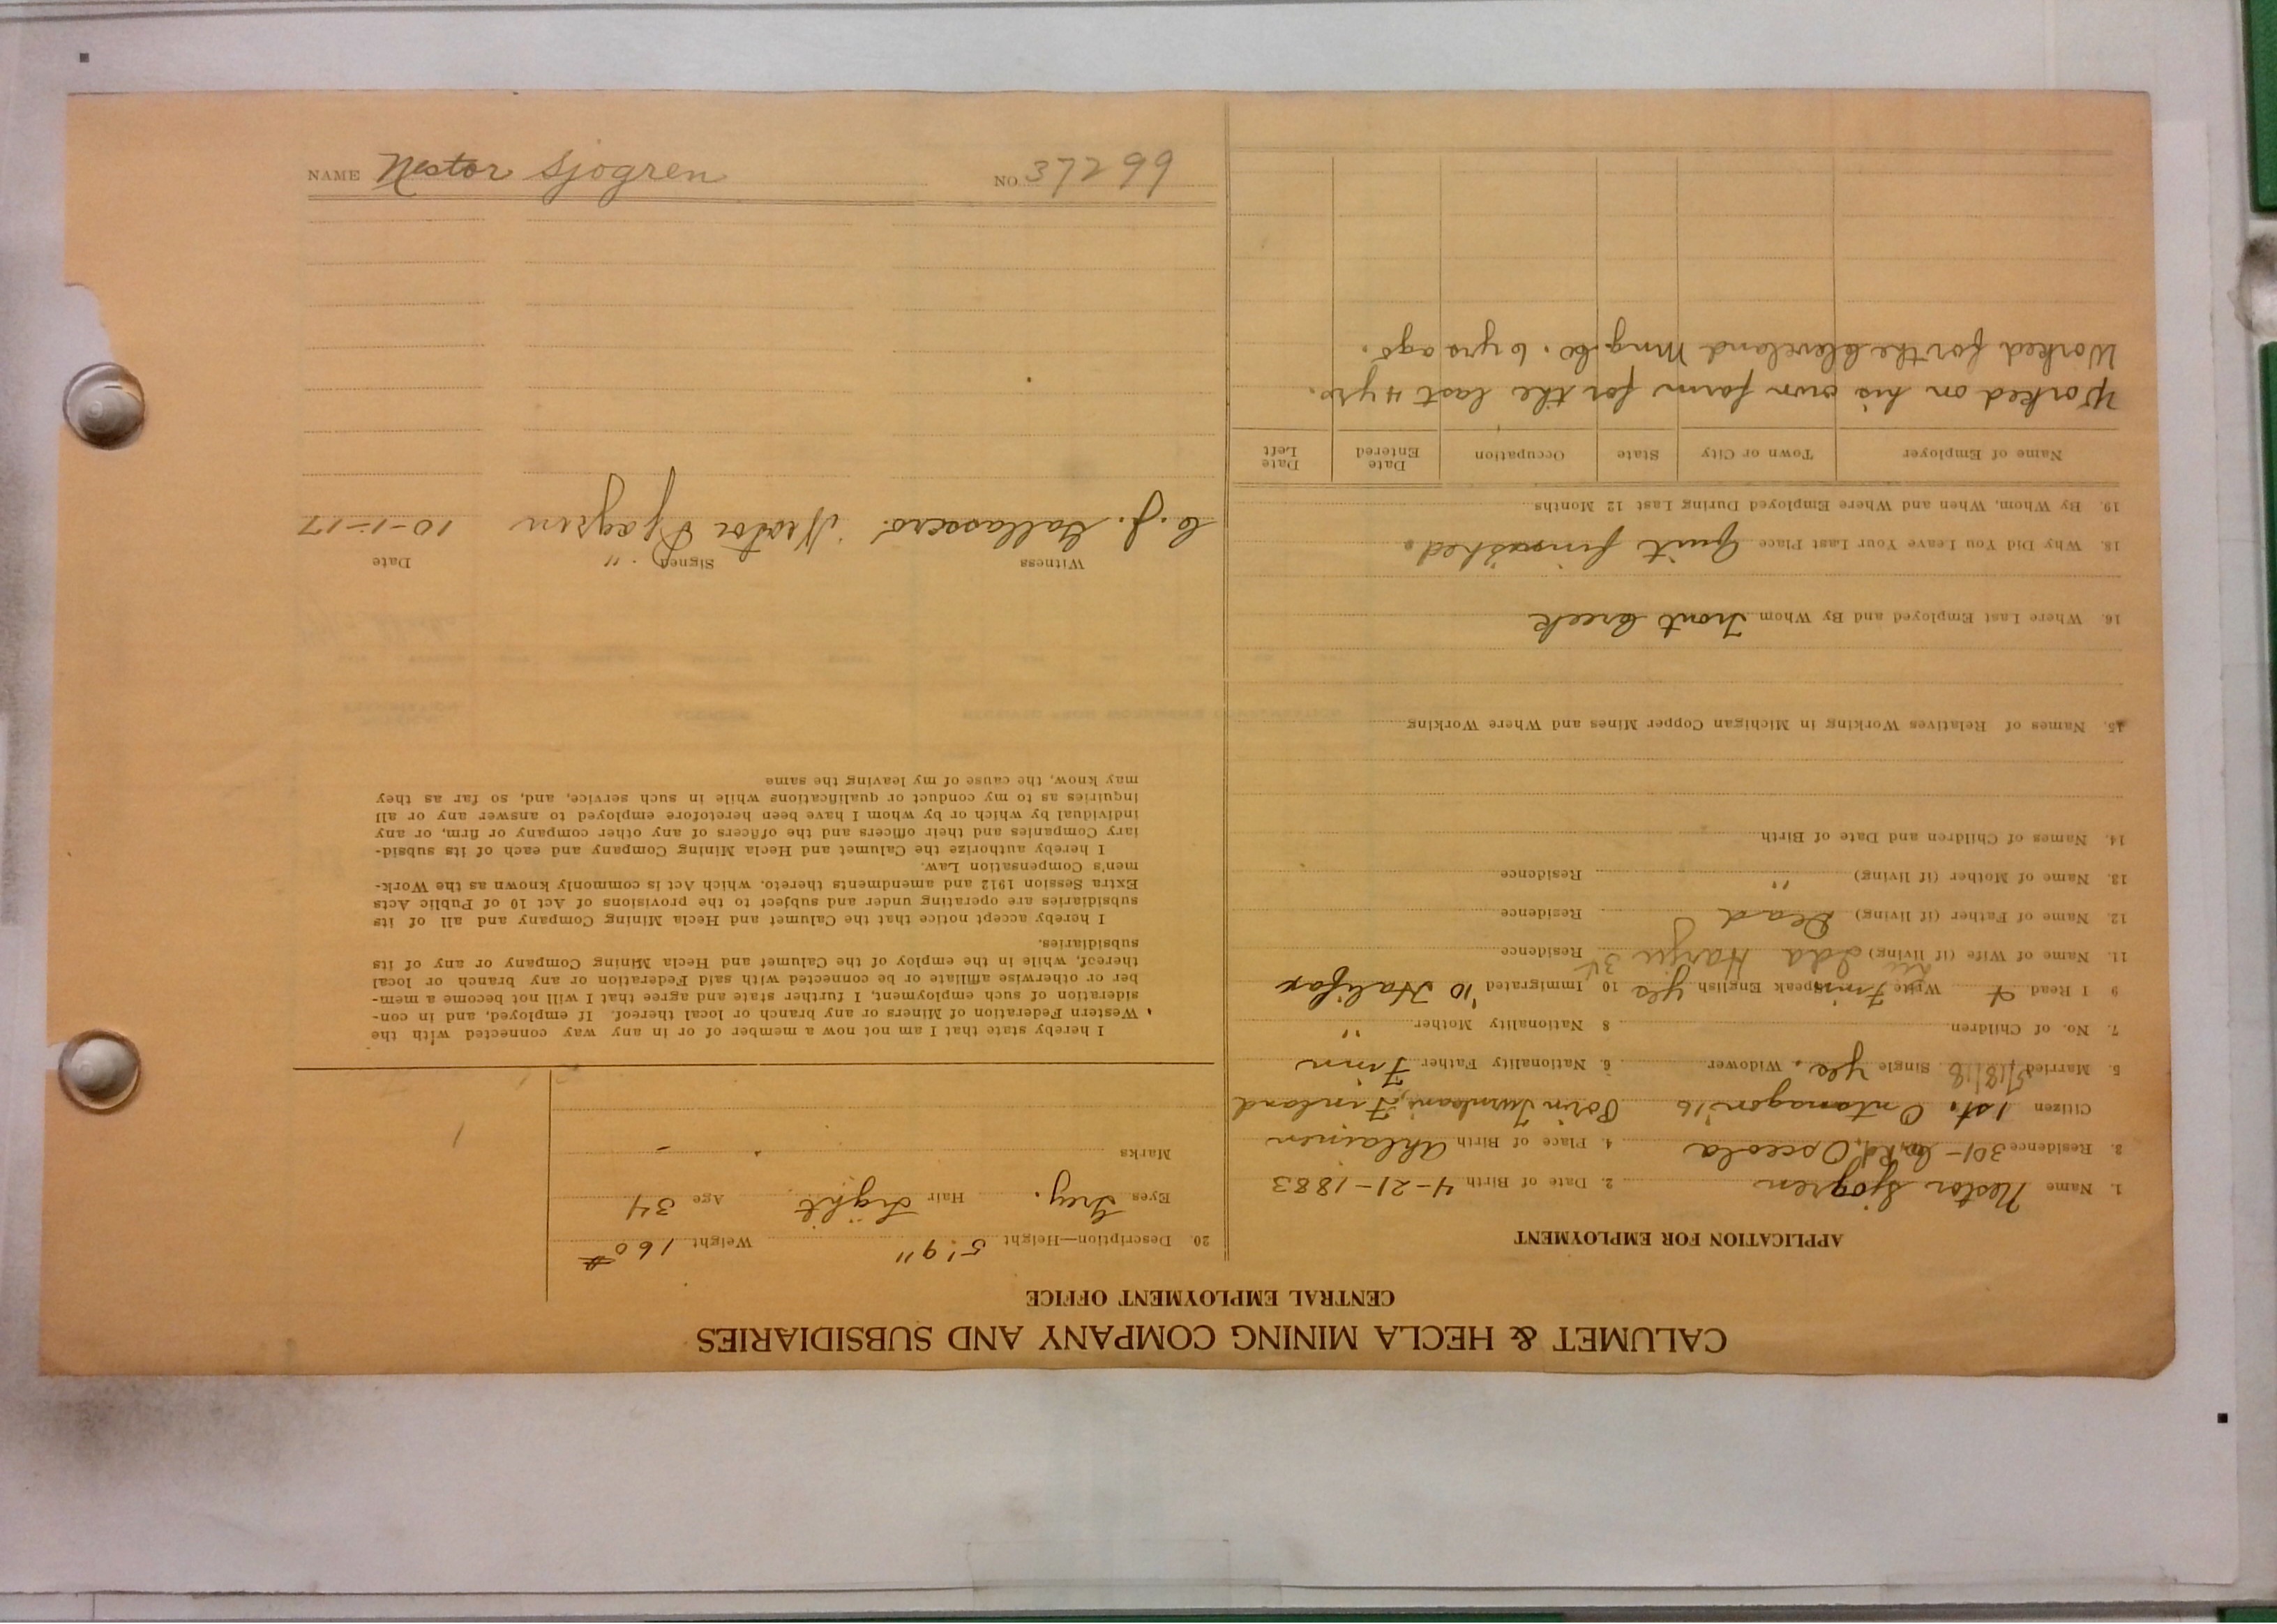 CALUMET & HECLA MINING COMPANY AND SUBSIDIARIES
CENTRAL EMPLOYMENT OFFICE
APPLICATION FOR EMPLOYMENT
1. Name Nestor Sjogren 2. Date of Birth 4-21-1883
3. Residence 301- Osceola 4. Place of Birth Ahlainen
Citizen 1st. Ontonagon '16 Porin Finland
5. Married 5/18/18 Single yes. Widower 6. Nationality Father Finn
7. No. of Children 8 Nationality Mother "
9 I Read & Write Finn Speak English yes 10 Immigrated '10 Halifax
11. Name of Wife (if living) Ida Harju 34 Residence
12. Name of Father (if living) Dead Residence
13. Name of Mother (if living) " Residence
14. Names of Children and Date of Birth
15. Names of Relatives Working in Michigan Copper Mines and Where Working
16. Where Last Employed and By Whom Trout Creek
18. Why Did You Leave Your Last Place Quit finished.
19. By Whom, When and Where Employed During Last 12 Months
Name of Employer Town or City State Occupation Date Entered Date Left
Worked on his own farm for the last 4 yrs.
Worked for the Cleveland Mng. Co. 6 yrs ago.
20. Description—Height 5' 9" Weight 160 #
Eyes Grey. Hair Light Age 34
Marks -
I hereby state that I am not now a member of or in any way connected with the
Western Federation of Miners or any branch or local thereof. If employed, and in con-
sideration of such employment, I further state and agree that I will not become a mem-
ber or otherwise affiliate or be connected with said Federation or any branch or local
thereof, while in the employ of the Calumet and Hecla Mining Company or any of its
subsidiaries.
I hereby accept notice that the Calumet and Hecla Mining Company and all of its
subsidiaries are operating under and subject to the provisions of Act 10 of Public Acts
Extra Session 1912 and amendments thereto, which Act is commonly known as the Work-
men's Compensation Law.
I hereby authorize the Calumet and Hecla Mining Company and each of its subsid-
iary Companies and their officers and the officers of any other company or firm, or any
individual by which or by whom I have been heretofore employed to answer any or all
inquiries as to my conduct or qualifications while in such service, and, so far as they
may know, the cause of my leaving the same
Witness Signed Date
C. J. Nestor Sjogren 10-1-17
NAME Nestor Sjogren NO. 37299